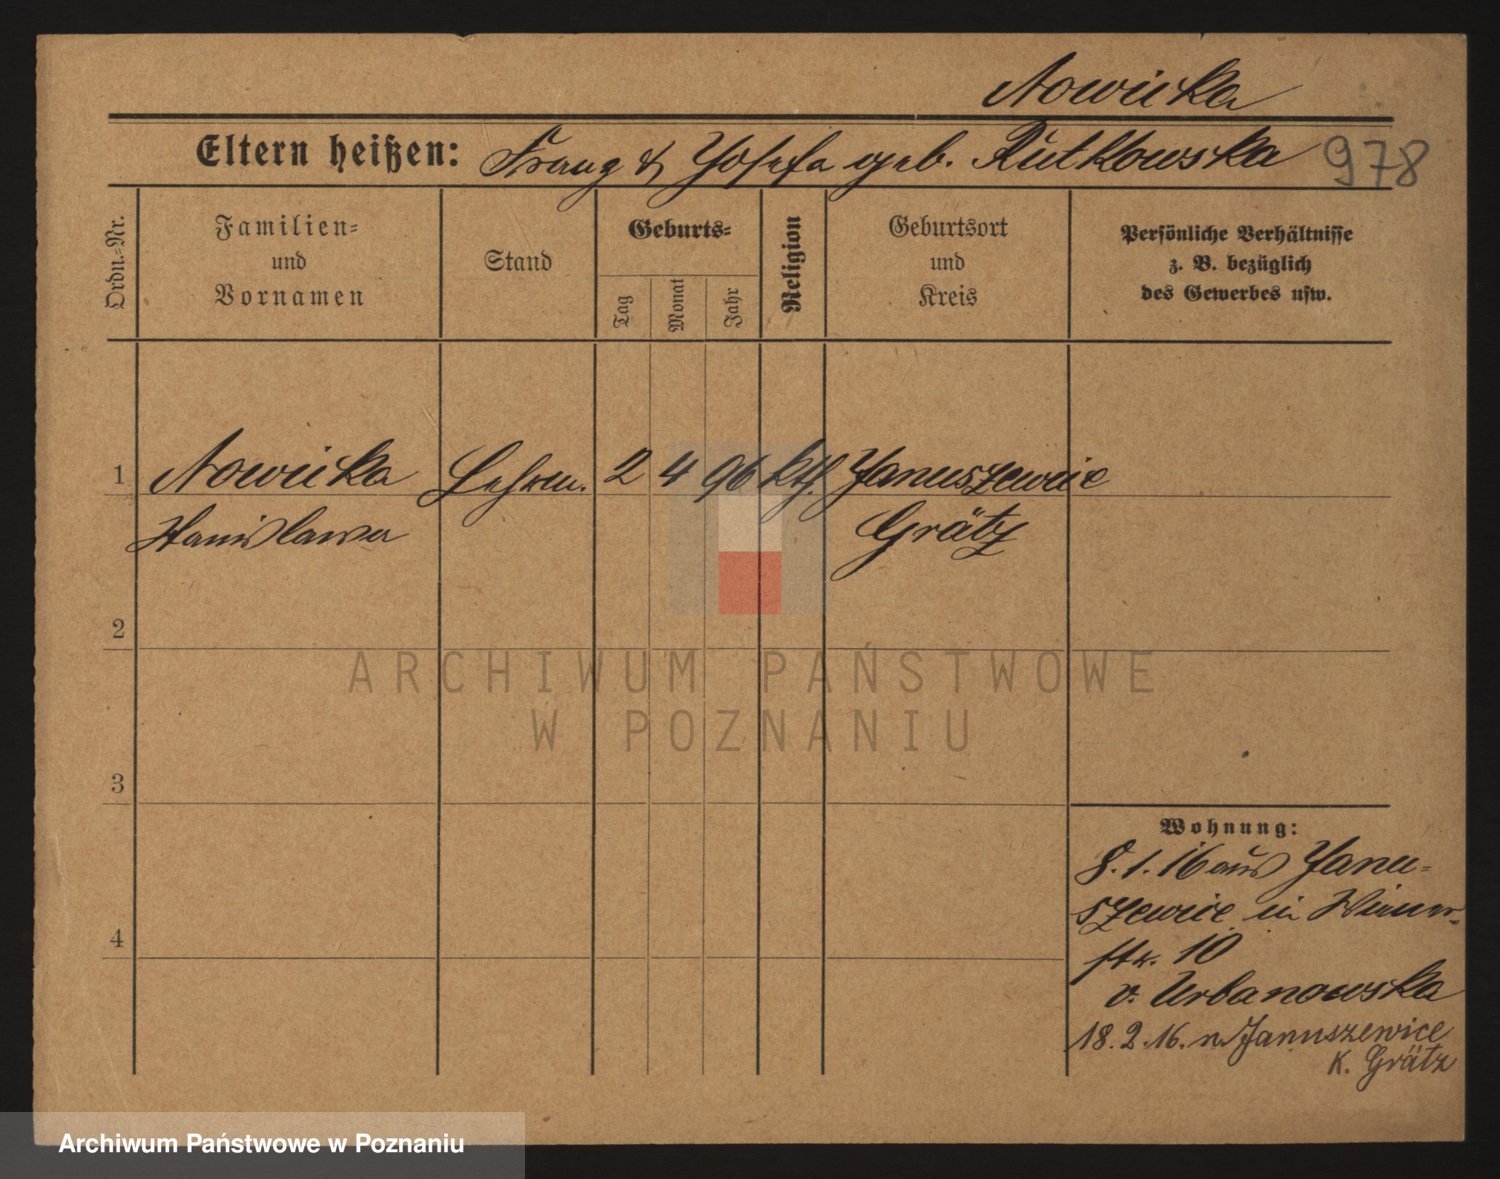 Nowicka
Eltern heißen: Franz & Josefa geb. Rutkowska 978
Ordn.-Nr.
Familien-
und
Vornamen
Stand
Geburts-
Tag
Monat
Jahr
Religion
Geburtsort
und
Kreis
Persönliche Verhältnisse
z. B. bezüglich
des Gewerbes usw.
1 Nowicka Lehrn. 2 4 96 kth. Januszewice
Stanislawa Grätz
2
3
4
Wohnung:
8.1.16 aus Janu-
szewice in
str. 10
v. Urbanowska
18.2.16. n Januszewice
K. Grätz
ARCHIWUM PAŃSTWOWE
W POZNANIU
Archiwum Państwowe w Poznaniu